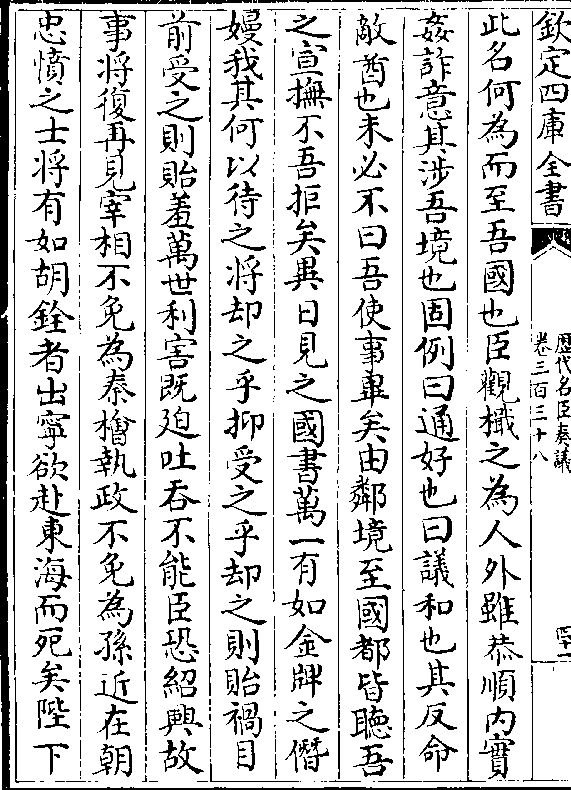 欽定四庫全書
歷代名臣奏議
卷三百三十八
四十一
此名何為而至吾國也臣觀檝之為人外雖恭順内實
姦詐意其涉吾境也固例曰通好也曰議和也其反命
敵酋也未必不曰吾使事畢矣由鄰境至國都皆聽吾
之宣撫不吾拒矣異日見之國書萬一有如金牌之僭
嫚我其何以待之將却之乎抑受之乎却之則貽禍目
前受之則貽羞萬世利害既廹吐吞不能臣恐紹興故
事將復再見宰相不免為秦檜執政不免為孫近在朝
忠憤之士將有如胡銓者出寧欲赴東海而死矣陛下